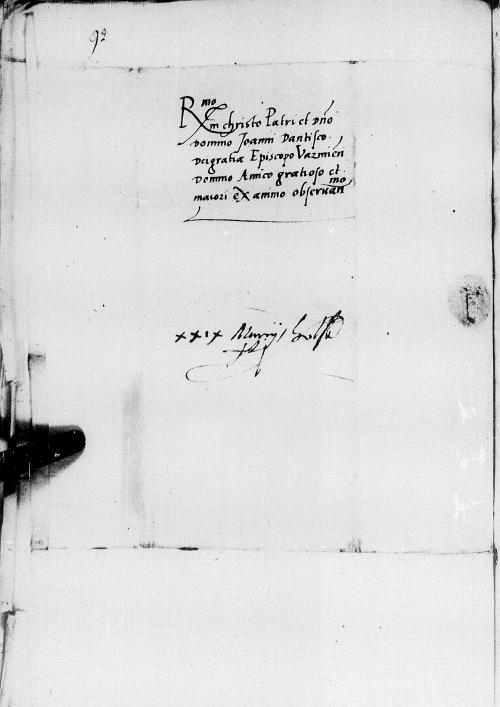 92
Rmo
in christo Patri et dno
domino Joanni Dantisco
Deigratia Episcopo Varmien
Domino Amico gratioso et
maiori ex animo obseruan mo
xxix